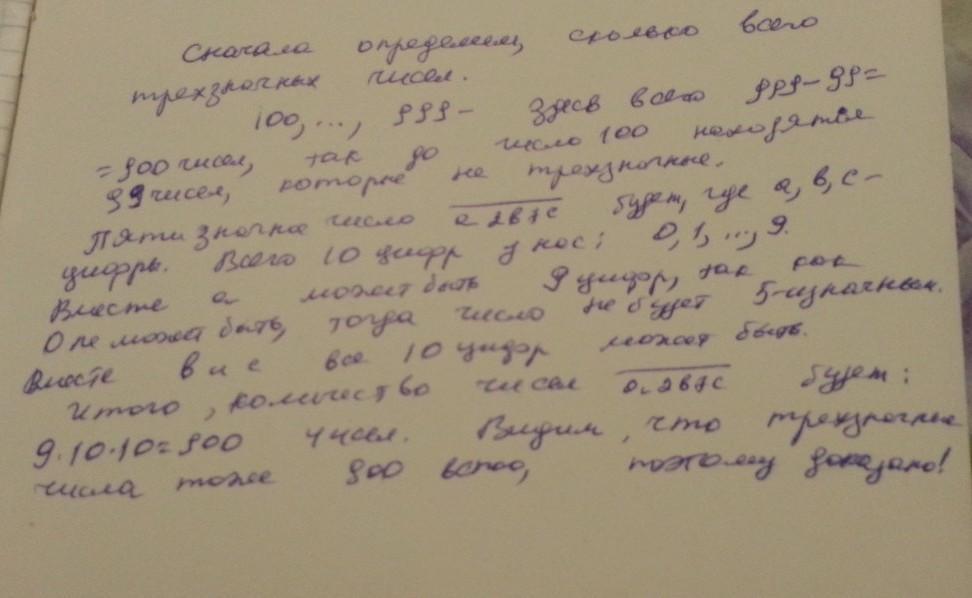 Сначала определим, сколько всего
трехзначных чисел.
100, ..., 999 – здесь всего 999-99=
=900 чисел, так до число 100 находятся
99 чисел, которые не трехзначные.
Пятизначное число a2b7c будет, где a, b, c –
цифры. Всего 10 цифр у нас: 0, 1, ..., 9.
Вместо a может быть 9 цифр, так как
0 не может быть, тогда число не будет 5-изначным.
Вместе b и c все 10 цифр может быть.
Итого, количество чисел a2b7c будет:
9·10·10=900 чисел. Видим, что трехзначные
числа тоже 900 всего, поэтому доказано!